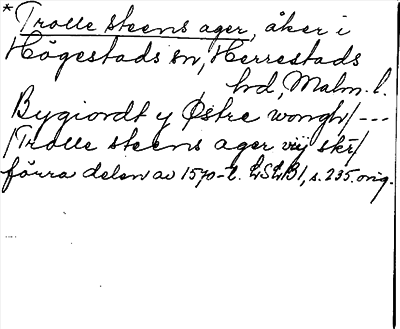 *Trolle steens ager, åker i
Högestads sn, Herrestads
hd, Malm. l.
Bygiordt y Østre wongh/---
/Trolle steens ager vij skr/
förra delen av 1570-t. LSLB1, s. 235. orig.